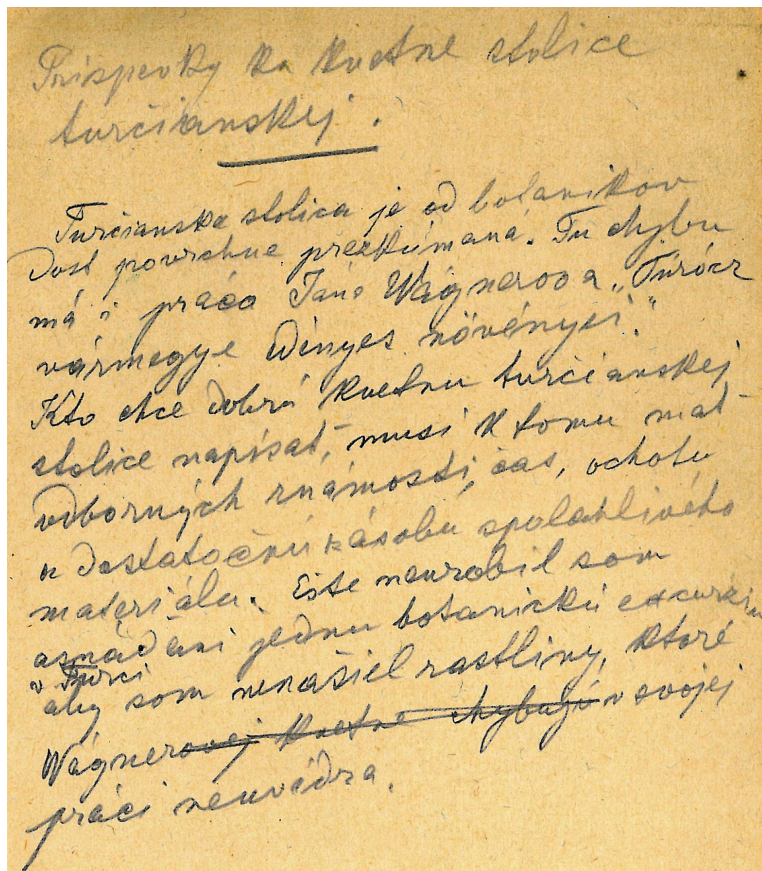 Príspevky ku kvetne stolice
turčianskej.
Turčianska stolica je od botanikov
dosť povrchne prezkúmaná. Tu chybu
má i práca Jána Wágnerova „Túrócz
vármegye édényes növényei."
Kto chce dobrú kvetnu turčianskej
stolice napísať, musí k tomu mať
odborných známosti, čas, ochotu
a dostatočnú zásobu spolahlivého
materiálu. Ešte neurobil som
aznáď ani jednu botanickú excurziu
v Turci
aby som nenašiel rastliny, ktoré
Wágnerovej kvetne chybujú v svojej
práci neuvádza.